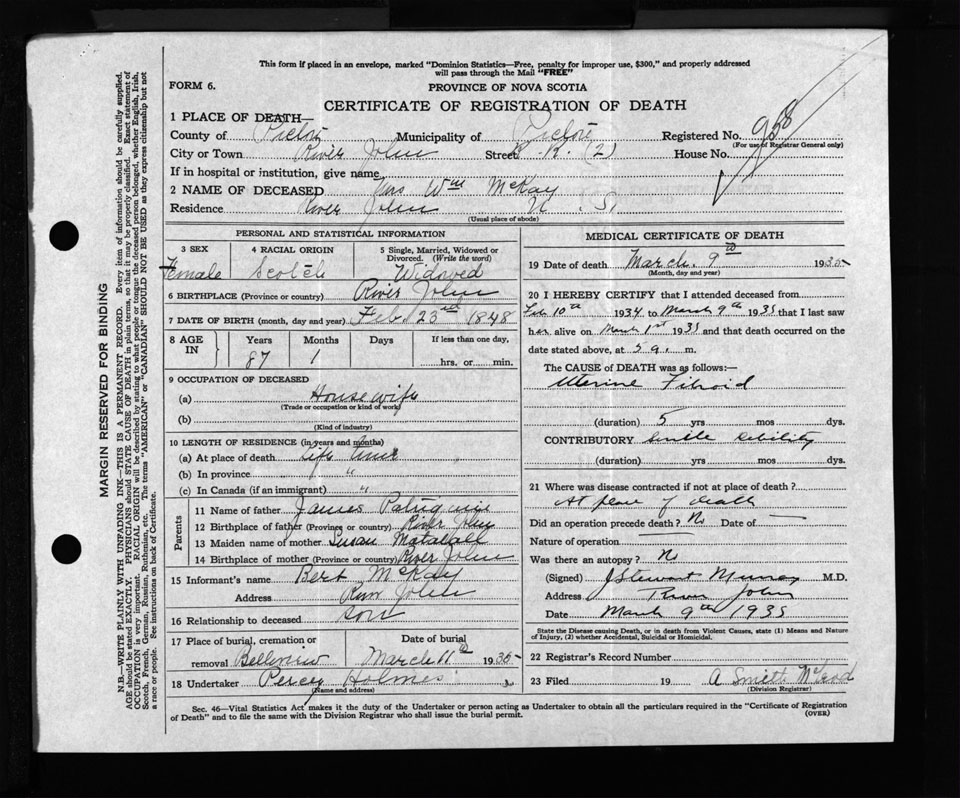 This form if placed in an envelope, marked "Dominion Statistics—Free, penalty for improper use, $300," and properly addressed
will pass through the Mail "FREE"
FORM 6.
PROVINCE OF NOVA SCOTIA
CERTIFICATE OF REGISTRATION OF DEATH
1 PLACE OF DEATH—
County of Pictou Municipality of Pictou Registered No. 958
(For use of Registrar General only)
City or Town River John Street R. R. (2) House No.
If in hospital or institution, give name
2 NAME OF DECEASED Mrs Wm McKay
Residence River John N. S.
(Usual place of abode)
PERSONAL AND STATISTICAL INFORMATION
3 SEX
Female
4 RACIAL ORIGIN
Scotch
5 Single, Married, Widowed or
Divorced. (Write the word)
Widowed
6 BIRTHPLACE (Province or country) River John
7 DATE OF BIRTH (month, day and year) Feb. 23rd 1848
8 AGE IN
Years Months Days If less than one day,
87 1 hrs. or min.
9 OCCUPATION OF DECEASED
(a) Housewife
(Trade or occupation or kind of work)
(b)
(Kind of industry)
10 LENGTH OF RESIDENCE (in years and months)
(a) At place of death life time
(b) In province "
(c) In Canada (if an immigrant) "
Parents
11 Name of father James Patriquin
12 Birthplace of father (Province or country) River John
13 Maiden name of mother Susan Matatall
14 Birthplace of mother (Province or country) River John
15 Informant's name Bert McKay
Address River John
16 Relationship to deceased son
17 Place of burial, cremation or
removal Belleview
Date of burial
March 11th 1935
18 Undertaker Percy Holmes
(Name and address)
MEDICAL CERTIFICATE OF DEATH
19 Date of death March 9th 1935
(Month, day and year)
20 I HEREBY CERTIFY that I attended deceased from
Feb 10th 1934 to March 9th 1935 that I last saw
her alive on March 1st 1935 and that death occurred on the
date stated above, at 5 a. m.
The CAUSE OF DEATH was as follows:—
Uterine Fibroid
(duration) 5 yrs mos dys.
CONTRIBUTORY Senile debility
(duration) yrs mos dys.
21 Where was disease contracted if not at place of death?
At place of death
Did an operation precede death? No Date of —
Nature of operation —
Was there an autopsy? No
(Signed) J Stewart Murray M.D.
Address River John
Date March 9th 1935
State the Disease causing Death, or in death from Violent Causes, state (1) Means and Nature
of Injury, (2) whether Accidental, Suicidal or Homicidal.
22 Registrar's Record Number
23 Filed 19 A Smith McLeod
(Division Registrar)
Sec. 46—Vital Statistics Act, makes it the duty of the Undertaker or person acting as Undertaker to obtain all the particulars required in the "Certificate of Registration
of Death" and to file the same with the Division Registrar who shall issue the burial permit.
(OVER)
MARGIN RESERVED FOR BINDING
N.B.—WRITE PLAINLY WITH UNFADING INK—THIS IS A PERMANENT RECORD. Every item of information should be carefully supplied.
AGE should be stated EXACTLY. PHYSICIANS should STATE CAUSE OF DEATH in plain terms, so that it may be properly classified. Exact statement of
OCCUPATION is very important. RACIAL ORIGIN will be described by stating to what people or tongue the deceased person belonged, whether English, Irish,
Scotch, French, German, Russian, Ruthenian, etc. The terms "AMERICAN" or "CANADIAN" SHOULD NOT BE USED as they express citizenship but not
a race or people. See instructions on back of Certificate.